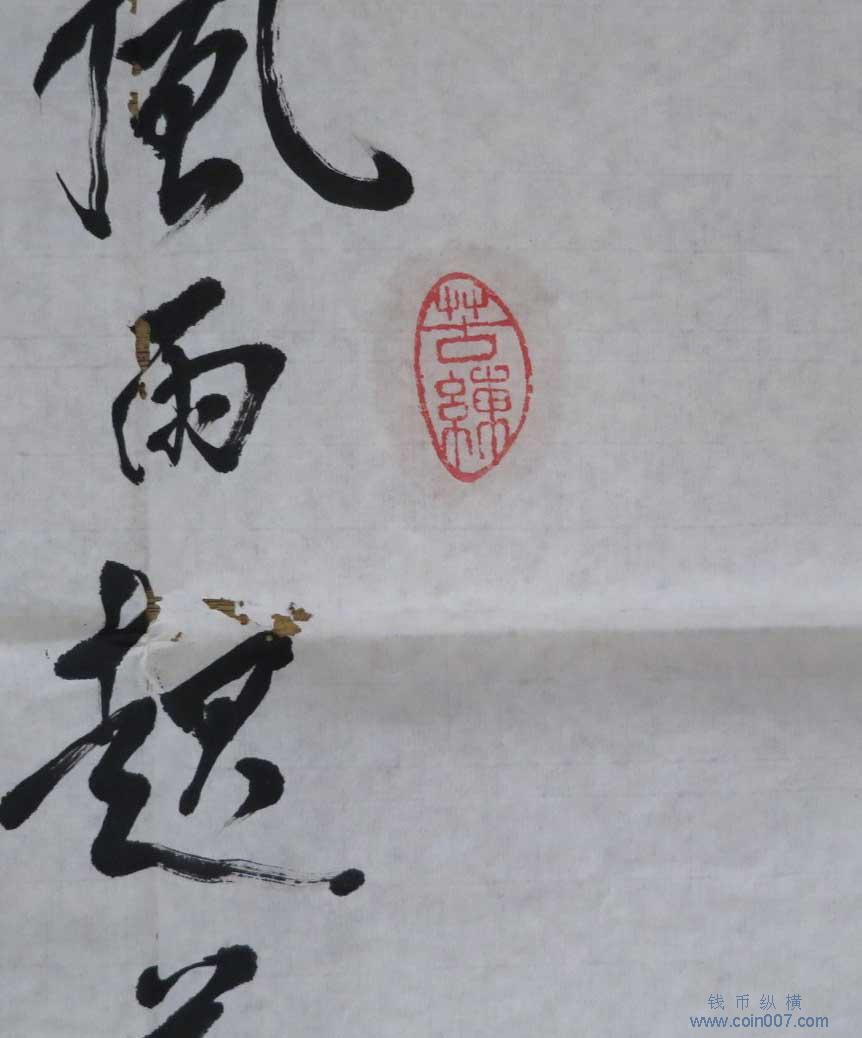 苦練
風雨起
钱币纵横
www.coin007.com